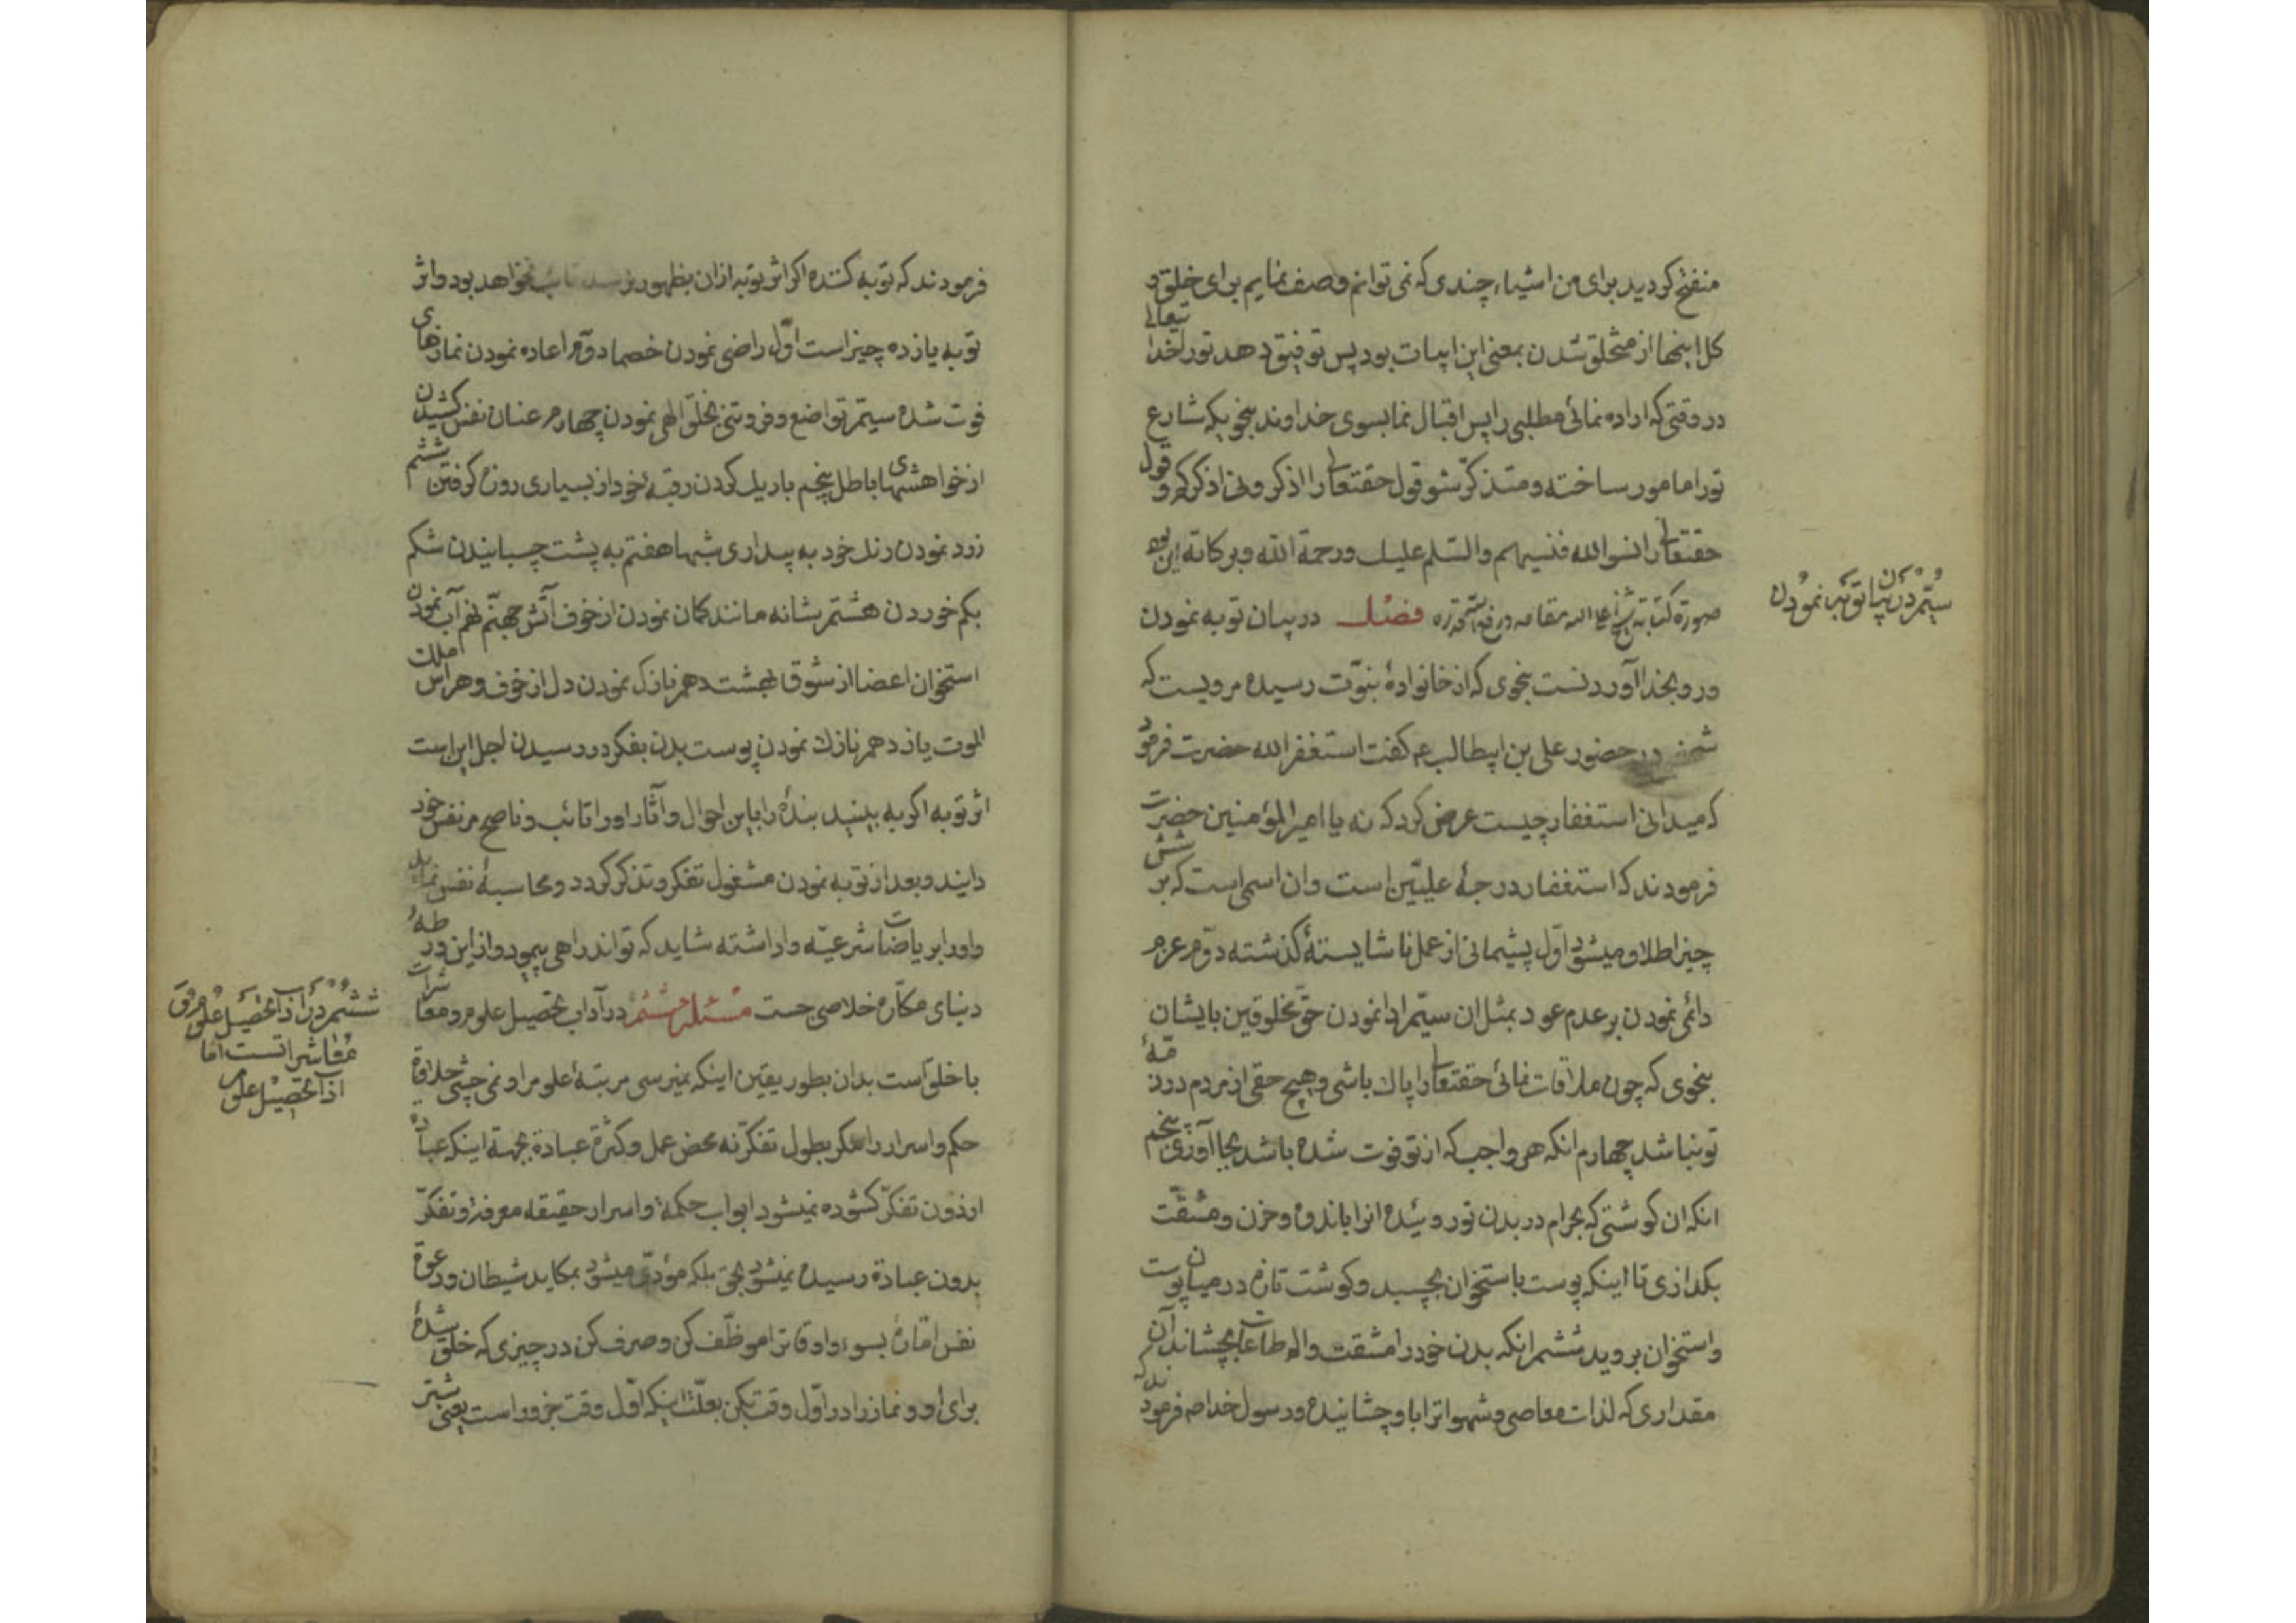 منفتح کردید برای من اشیاء چندی که نمی توانم وصف نمایم برای خلق و
کل اینها از متخلق شدن بمعنی این ابیات بود پس توفیق دهد تورا خدا تعالی
در وقتی که اراده نمائی مطلبی را پس اقبال نما بسوی خداوند بنحویکه شارع
تورا مامور ساخته و متذکر شو قول حقتعالی را اذکرونی اذکرکم و قول
حقتعالی را نسوا الله فنسیهم والسلم علیک ورحمة الله وبرکاته این بود
صورة کتابة شیخ اعلی الله مقامه فصل در بیان توبه نمودن
ورو بخدا آوردنست بنحوی که از خانوادهٔ نبوّت رسیده مرویست که
شخصی در حضور علی بن ابیطالب ع گفت استغفر الله حضرت فرمود
که میدانی استغفار چیست عرض کرد که نه یا امیر المؤمنین حضرت
فرمودند که استغفار درجهٔ علیّین است وان اسمی است که بر شش
چیز اطلاق میشود اوّل پشیمانی از عمل ناشایستهٔ گذشته دوّم عزم
دائمی نمودن بر عدم عود بمثل ان سیّم ادا نمودن حق مخلوقین بایشان
بنحوی که چون ملاقات نمائی حقتعالی را پاک باشی و هیچ حقی از مردم در ذمّهٔ
تو نباشد چهارم انکه هر واجب که از تو فوت شده باشد بجا آوری پنجم
انکه ان کوشتی که بحرام در بدن تو روئیده انرا باندوه وحزن ومشقّت
بکدازی تا اینکه پوست باستخوان بچسبد وکوشت تازه در میان پوست
واستخوان بروید ششم انکه بدن خودرا مشقت والم طاعات بچشاند آن
مقداری که لذات معاصی وشهواترا باو چشانیده ورسول خدا ص فرمودند که
سیّم در بیان توبه نمودن
فرمودند که توبه کننده اکر اثر توبه ازان بظهور نرسد تائب نخواهد بود واثر
توبه یازده چیز است اوّل راضی نمودن خصما دوّم اعاده نمودن نمازهای
فوت شده سیّم تواضع وفروتنی بخلق الهی نمودن چهارم عنان نفس کشیدن
از خواهشهای باطل پنجم باریک کردن رقبهٔ خود از بسیاری روزه کرفتن ششم
زرد نمودن رنک خود به بیداری شبها هفتم به پشت چسبانیدن شکم
بکم خوردن هشتم بشانه مانند کمان نمودن از خوف آتش جهنّم نهم آب نمودن
استخوان اعضا از شوق بهشت دهم نازک نمودن دل از خوف وهراس ملک
الموت یازدهم نازک نمودن پوست بدن بفکر در رسیدن اجل این است
اثر توبه اکر به بینید بندهٔ را باین احوال وآثار اورا تائب وناصح مر نفس خود
دانید وبعد از توبه نمودن مشغول تفکر وتذکر کردد ومحاسبهٔ نفس نماید
واورا بر ریاضات شرعیّه واداشته شاید که تواند راهی پیمود واز این ورطهٔ
دنیای مکّاره خلاصی جست مسئله ششم در آداب تحصیل علوم ومعاشرات
با خلق است بدان بطور یقین اینکه نمیرسی مرتبهٔ علوم را ونمی چشی حلاوة
حکم واسرار را مکر بطول تفکر نه محض عمل وکثرة عبادة بجهة اینکه عبادة
بدون تفکّر کشوده نمیشود ابواب حکمة واسرار حقیقة معرفة وتفکّر
بدون عبادة رسیده نمیشود بحق بلکه مؤدّی میشود بمکاید شیطان ودعوة
نفس امّارهٔ بسوء واوقاترا موظّف کن وصرف کن در چیزی که خلق شدهٔ
برای او ونماز را در اوّل وقت بکن بعلّت اینکه اوّل وقت جزور است یعنی شتر
ششم در آداب تحصیل علوم و
معاشراتست امّا
آداب تحصیل علوم